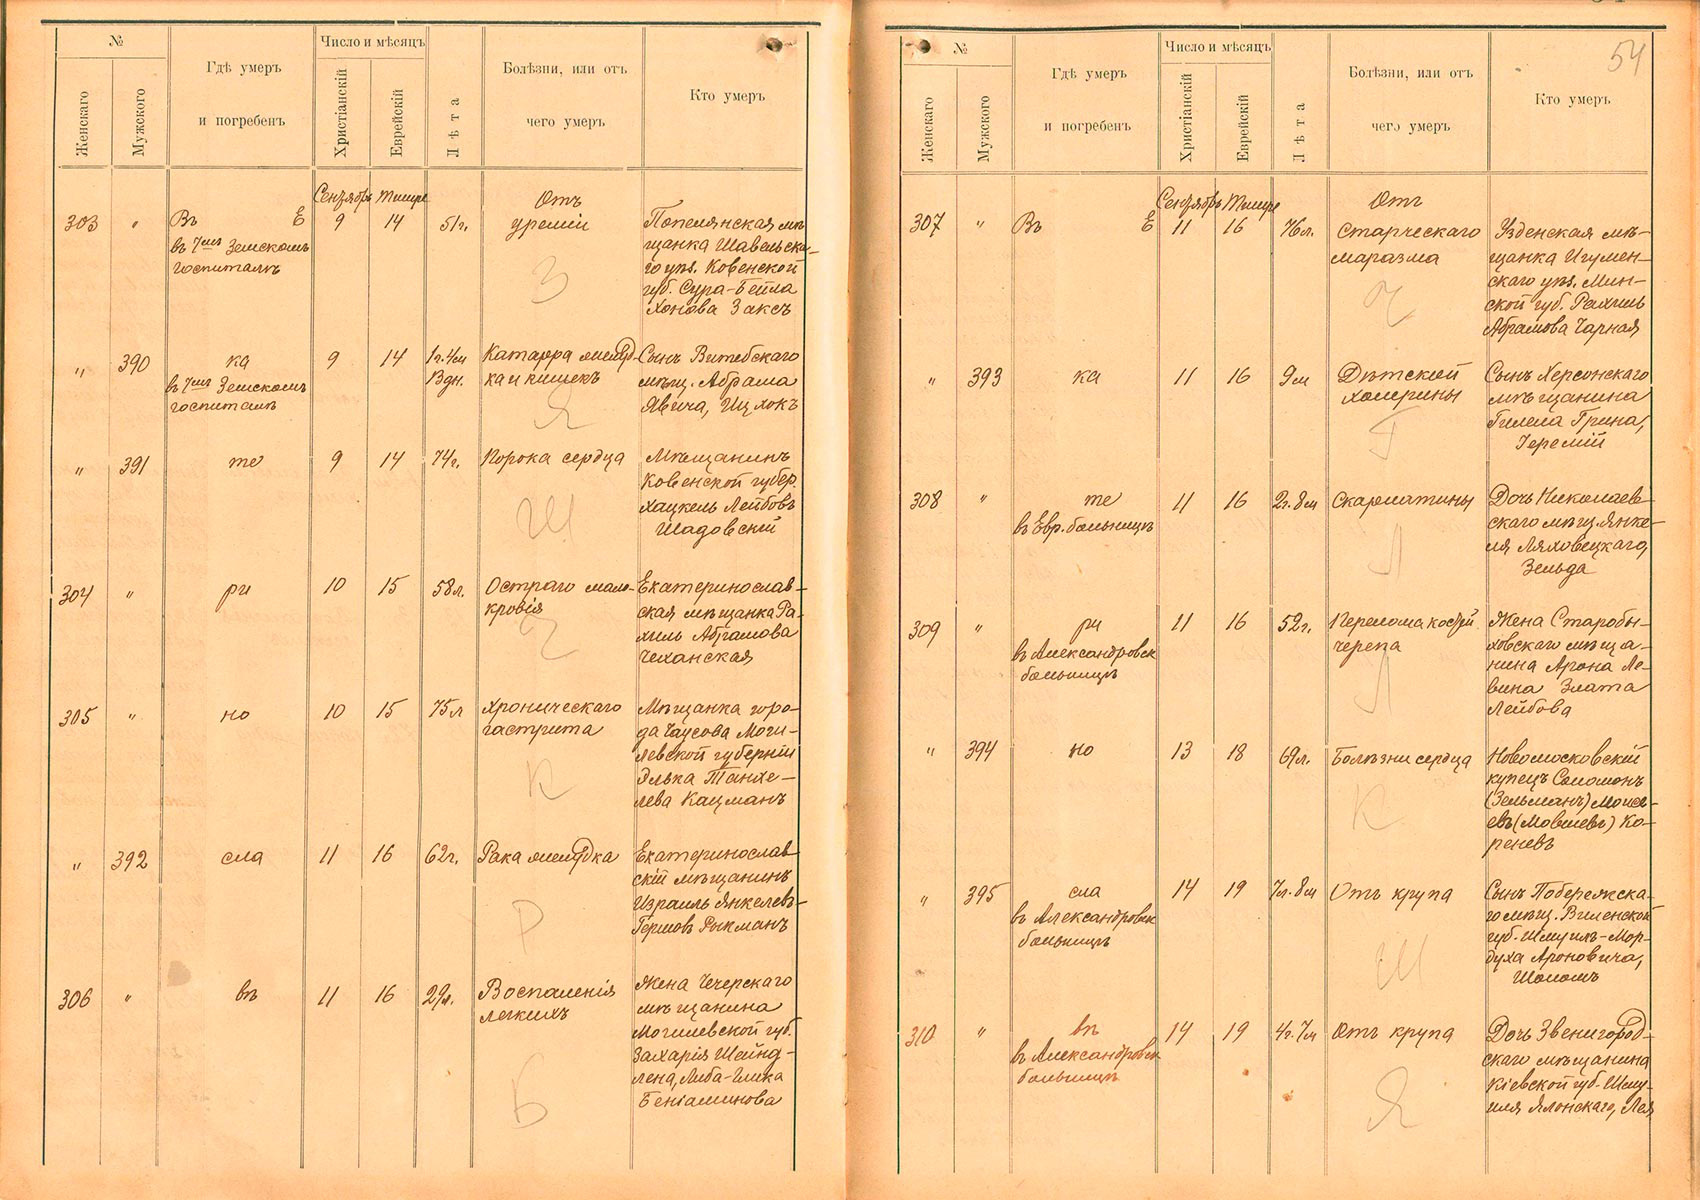 №
Женскаго
Мужского
Гдѣ умеръ
и погребенъ
Число и мѣсяцъ
Христіанскій
Еврейскій
Лѣта
Болѣзни, или отъ
чего умеръ
Кто умеръ
Сентябрь Тишре
303 " Въ Е
въ 7мъ Земскомъ
госпиталѣ
9 14 51г.
Отъ
уреміи
З
Попелянская мѣ-
щанка Шавельска-
го уѣз. Ковенской
губ. Сура-Бейла
Хонова Заксъ
" 390 ка
въ 7мъ Земскомъ
госпиталѣ
9 14 1г. 4м
13дн.
Катарра желуд-
ка и кишекъ
Я
Сынъ Витебскаго
мѣщ. Абрама
Явича, Ицхокъ
" 391 те 9 14 74г. Порока сердца
Ш
Мѣщанинъ
Ковенской губер.
Хацкель Лейбовъ
Шадовскій
304 " ри 10 15 58л. Остраго мало-
кровія
Ч
Екатеринослав-
ская мѣщанка Ра-
хиль Абрамова
Чеханская
305 " но 10 15 75л Хроническаго
гастрита
К
Мѣщанка горо-
да Чаусова Моги-
левской губерніи
Элька Танхе-
лева Кацманъ
" 392 сла 11 16 62г. Рака желудка
Р
Екатеринослав-
скій мѣщанинъ
Израиль Янкелевъ-
Гершовъ Рыкманъ
306 " въ 11 16 29л. Воспаленія
легкихъ
Б
Жена Чечерскаго
мѣщанина
Могилевской губ.
Захарія Шейнд-
лена, Либа-Глика
Беніаминова
54
№
Женскаго
Мужского
Гдѣ умеръ
и погребенъ
Число и мѣсяцъ
Христіанскій
Еврейскій
Лѣта
Болѣзни, или отъ
чего умеръ
Кто умеръ
Сентябрь Тишре
307 " Въ Е 11 16 76л.
Отъ
старческаго
маразма
Ч
Узденская мѣ-
щанка Игумен-
скаго уѣз. Мин-
ской губ. Рахиль
Абрамова Чарная
" 393 ка 11 16 9м Дѣтской
холерины
Г
Сынъ Херсонскаго
мѣщанина
Гилела Грина,
Іеремій
308 " те
въ Евр. больницѣ
11 16 2г. 8м Скарлатины
Л
Дочь Николаев-
скаго мѣщ. Янке-
ля Ляховецкаго,
Зельда
309 " ри
въ Александровск
больницѣ
11 16 52г. Перелома костей
черепа
Л
Жена Старобы-
ховскаго мѣща-
нина Арона Ле-
вина Злата
Лейбова
" 394 но 13 18 69л. Болѣзни сердца
К
Новомосковскій
купецъ Соломонъ
(Зельманъ) Моисе-
евъ (Мовшевъ) Ко-
реневъ
" 395 сла
въ Александровск
больницѣ
14 19 7л. 8м Отъ крупа
Ш
Сынъ Побережска-
го мѣщ. Виленской
губ. Шмуилъ-Мор-
духа Ароновича,
Шоломъ
310 " въ
въ Александровск
больницѣ
14 19 4г. 7м Отъ крупа
Я
Дочь Звенигород-
скаго мѣщанина
Кіевской губ. Шму-
иля Ялонскаго, Лея